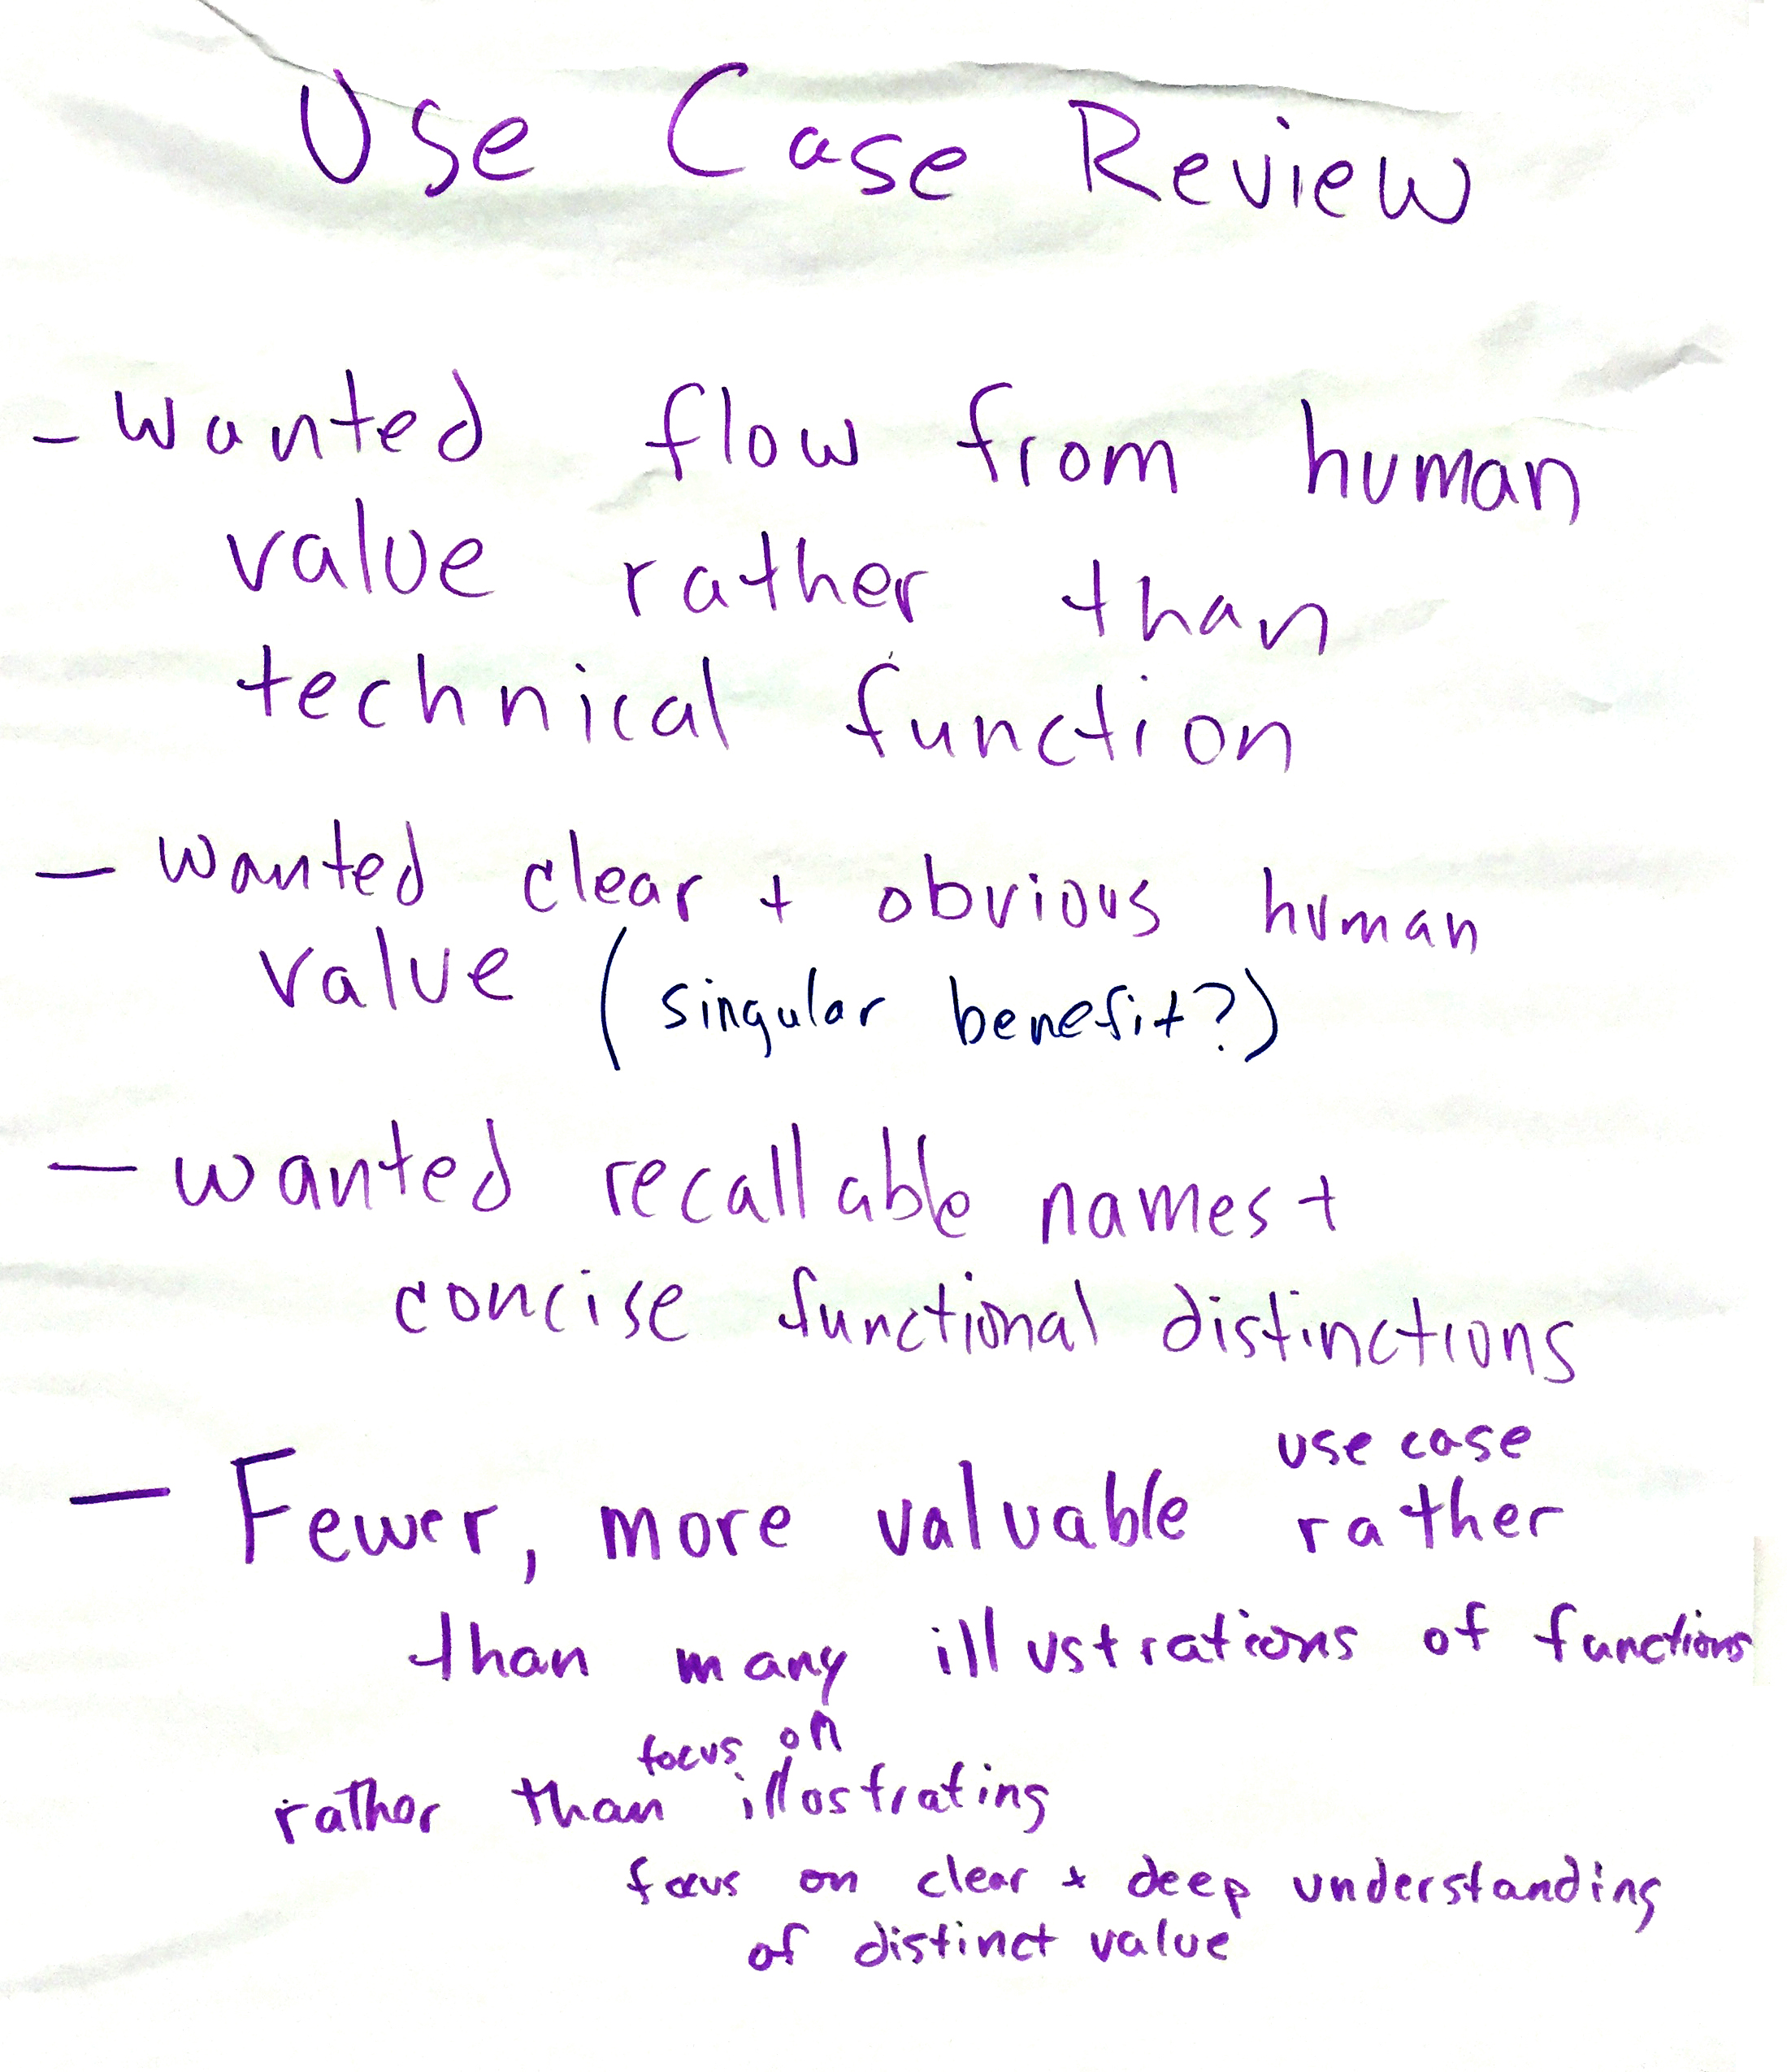 Use Case Review
- Wanted flow from human
value rather than
technical function
- Wanted clear + obvious human
value (singular benefit?)
- wanted recallable names +
concise functional distinctions
use case
- Fewer, more valuable rather
than many illustrations of functions
focus on
rather than illostrating
focus on clear + deep understanding
of distinct value